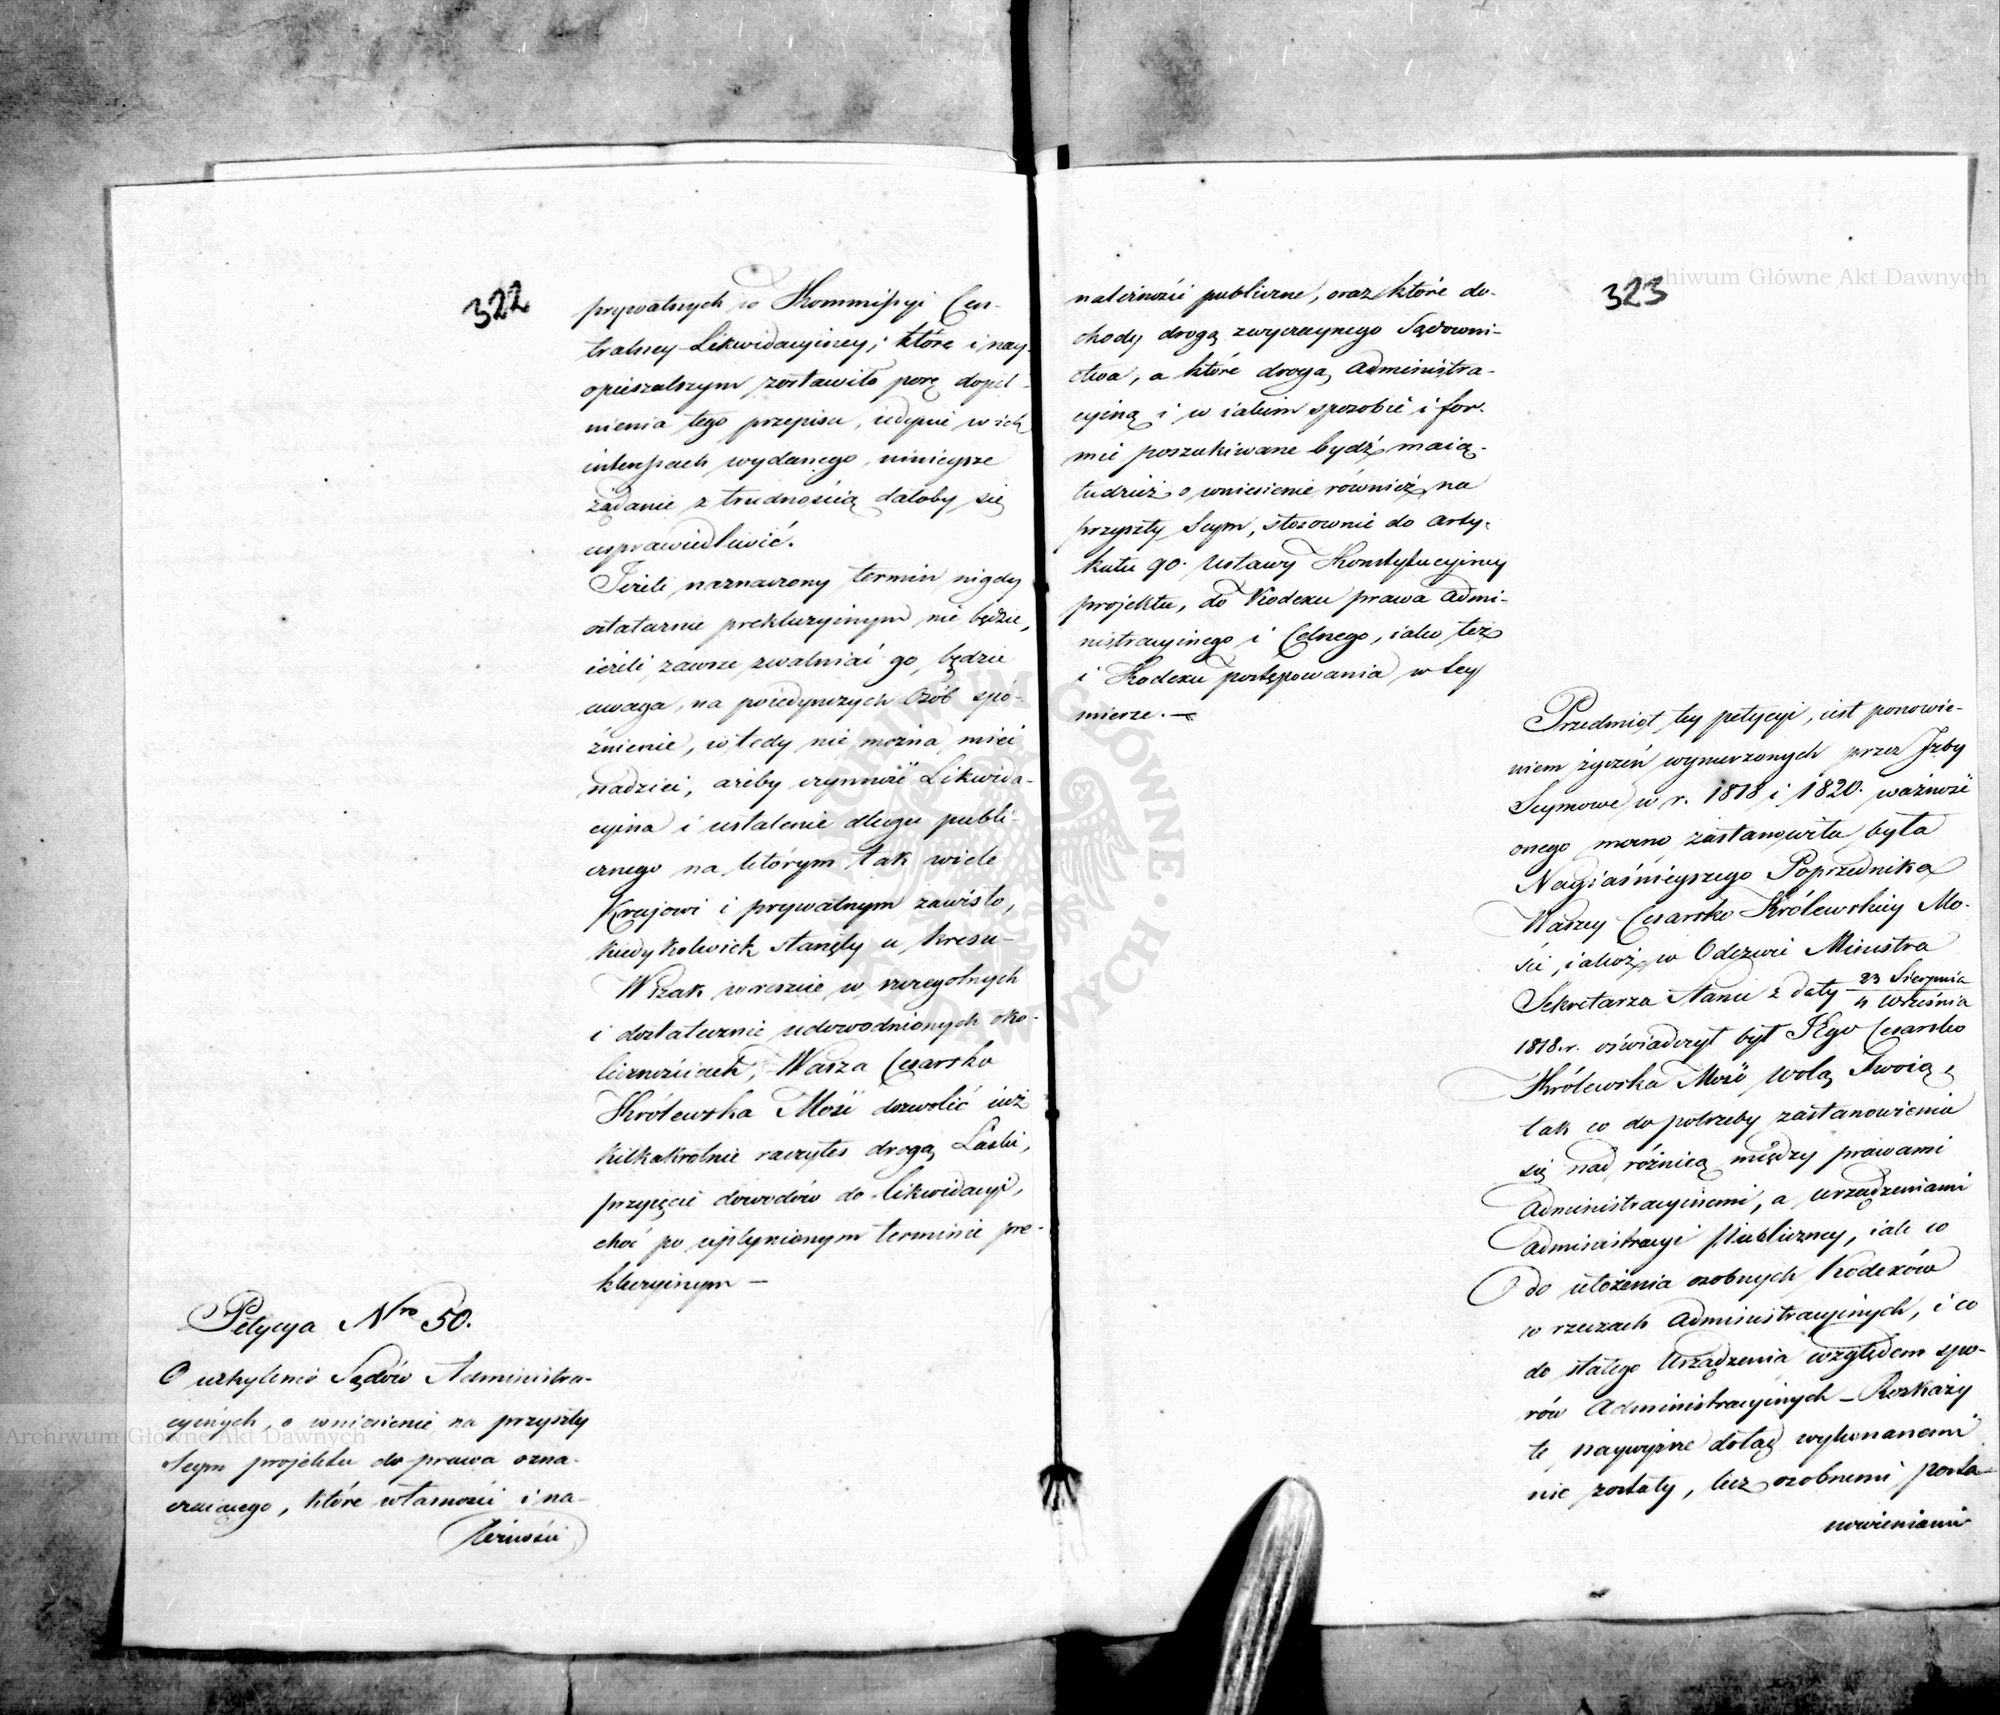 322
prywatnych w Kommissyi Cen-
tralney Likwidacyiney; które i nay-
opieszalszym zostawiło porę dopeł-
nienia tego przepisu, iedynie w ich
interessach wydanego, ninieysze
żądanie z trudnością dałoby się
usprawiedliwić.
Jeżeli naznaczony termin nigdy
ostatecznie prekluzyinym nie będzie,
ieżeli zawsze zwalniać go będzie
uwaga, na poiedynczych Osób spó-
źnienie, wtedy nie można mieć
nadziei, ażeby czynność Likwida-
cyina i ustalenie długu publi-
cznego na którym tak wiele
Krajowi i prywatnym zawisło,
kiedykolwiek stanęły u kresu-
Wszak wreszcie w szczególnych
i dostatecznie udowodnionych oko-
licznościach, Wasza Cesarsko
Królewska Mość dozwolić iuż
kilkakrotnie raczyłeś drogą Łaski,
przyięcie dowodów do likwidacyi,
choć po upłynionym terminie pre-
kluzyinym —
Petycya Nro 50.
O uchylenie Sądów Administra-
cyinych, o wniesienie na przyszły
Seym projektu do prawa ozna-
czaiącego, które własności i na-
leżności
323
należności publiczne, oraz które do-
chody drogą zwyczaynego Sądowni-
ctwa, a które drogą Administra-
cyiną i w iakim sposobie i for-
mie poszukiwane bydź maią-
tudzież o wniesienie również na
przyszły Seym, stosownie do arty-
kułu 90. Ustawy Konstytucyiney
projektu, do Kodexu prawa Admi-
nistracyinego i Celnego, iako też
i Kodexu postępowania w tey
mierze. —
Przedmiot tey petycyi, iest ponowie-
niem życzeń wynurzonych przez Izby
Seymowe w r. 1818 i 1820. ważność
onego mocno zastanowiła była
Nayiaśnieyszego Poprzednika
Waszey Cesarsko Królewskiey Mo-
ści, iakoż w Odezwie Ministra
Sekretarza Stanu z daty 23 Sierpnia
4 Września
1818. r. oświadczył był Jego Cesarsko
Królewska Mość wolą Swoią,
tak co do potrzeby zastanowienia
się nad różnicą między prawami
Administracyinemi, a urządzeniami
Administracyi Publiczney, iak co
do ułożenia osobnych Kodexów
w rzeczach Administracyinych, i co
do stałego Urządzenia względem spo-
rów Administracyinych — Rozkazy
te naywyższe dotąd wykonanemi
nie zostały, lecz osobnemi posta-
nowieniami
Archiwum Główne Akt Dawnych
Archiwum Główne Akt Dawnych